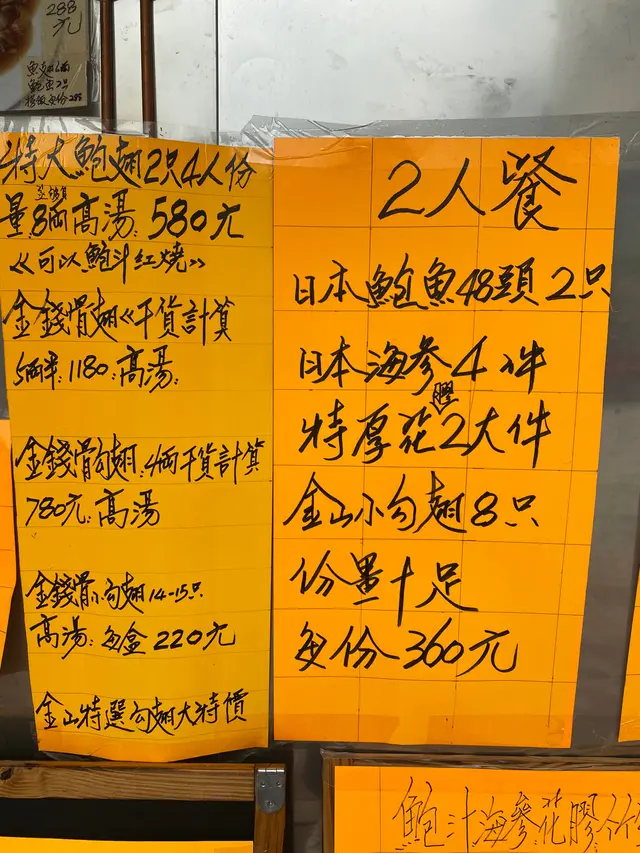 288
元
特大鮑翅2只4人份
量8両高湯:580元
《可以鮑汁红燒》
金錢骨翅《干貨計算
5両半:1180:高湯:
金錢骨勾翅:4両干貨計算
780元:高湯
金錢骨小勾翅14-15只
高湯:每盒220元
金山特選勾翅大特價
2人餐
日本鮑魚48頭2只
日本海参4件
特厚花膠2大件
金山小勾翅8只
份量十足
每份360元
鮑汁海參花膠